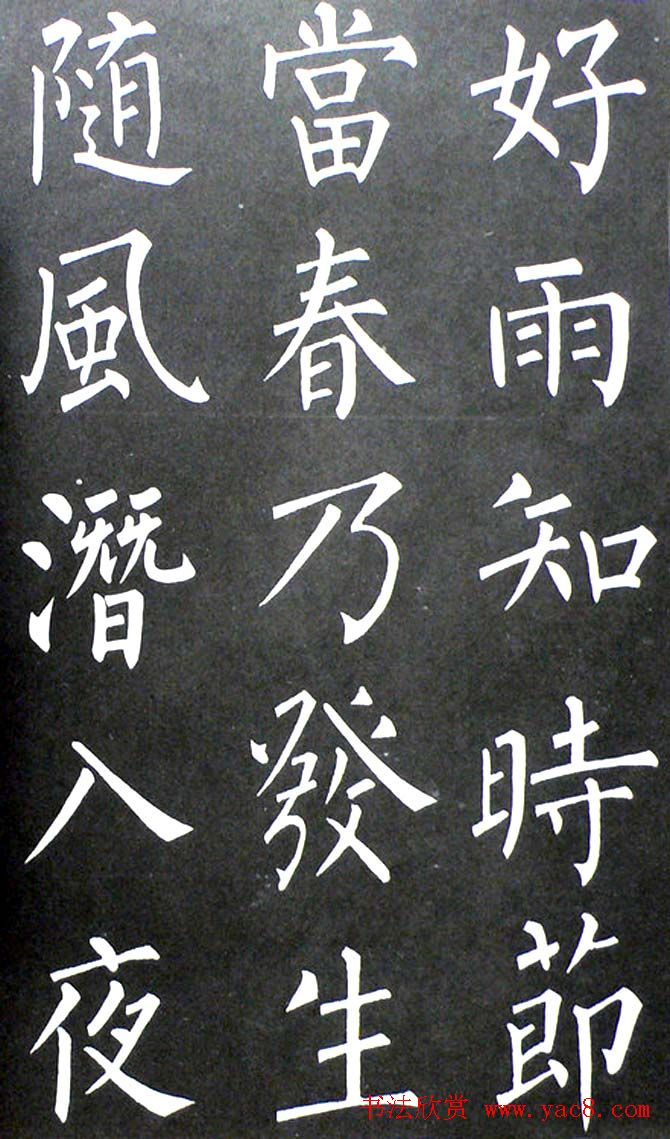 好雨知時節
當春乃發生
随風潛入夜
书法欣赏 www.yac8.com